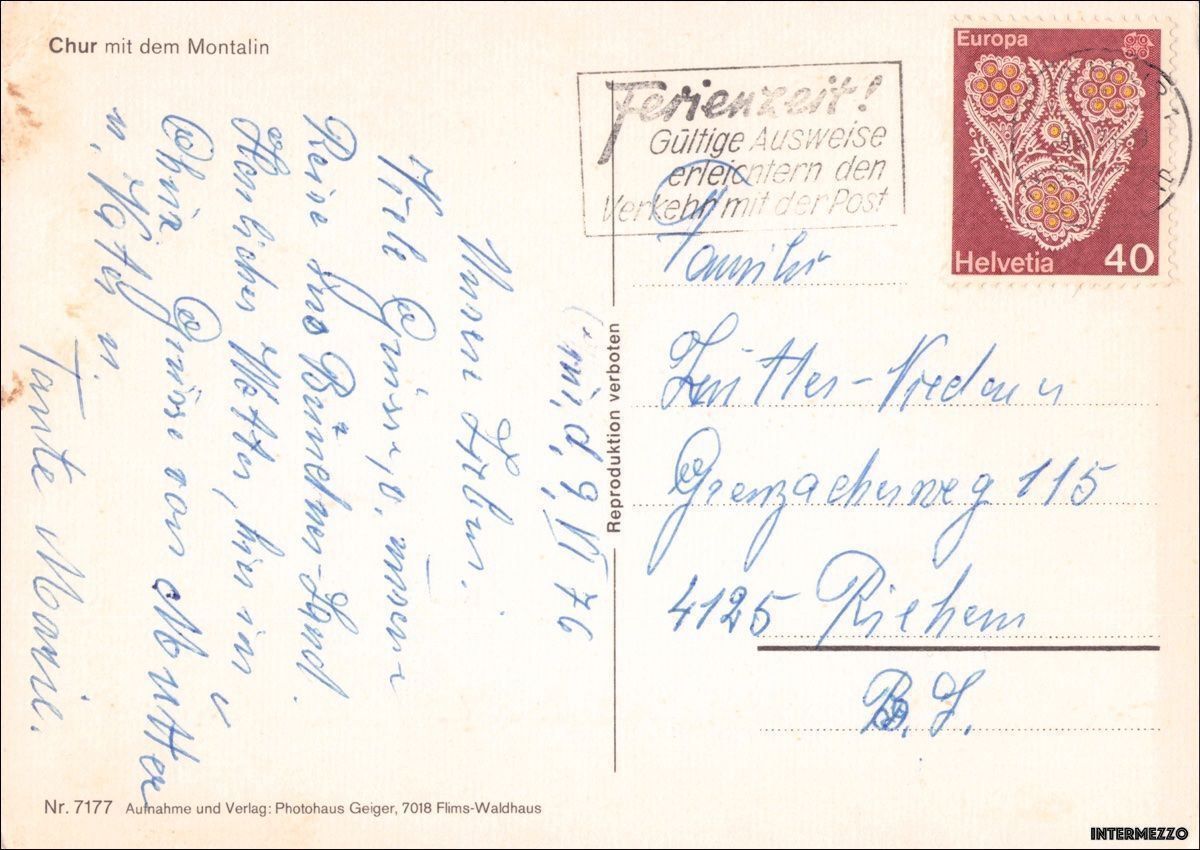 Chur mit dem Montalin
Europa
Helvetia 40
Ferienzeit!
Gültige Ausweise
erleichtern den
Verkehr mit der Post
9. VI 76
Unsere Lieben.
Viele Grüsse, v. unsere
Reise ins Bündner-Land.
Herrliches Wetter, hier in
Chur Grüsse von Mutter
u. Vater u.
Tante Marie.
Familie
Sutter-Niederer
Grenzacherweg 115
4125 Riehem
B. S.
Reproduktion verboten
Nr. 7177 Aufnahme und Verlag: Photohaus Geiger, 7018 Flims-Waldhaus
INTERMEZZO